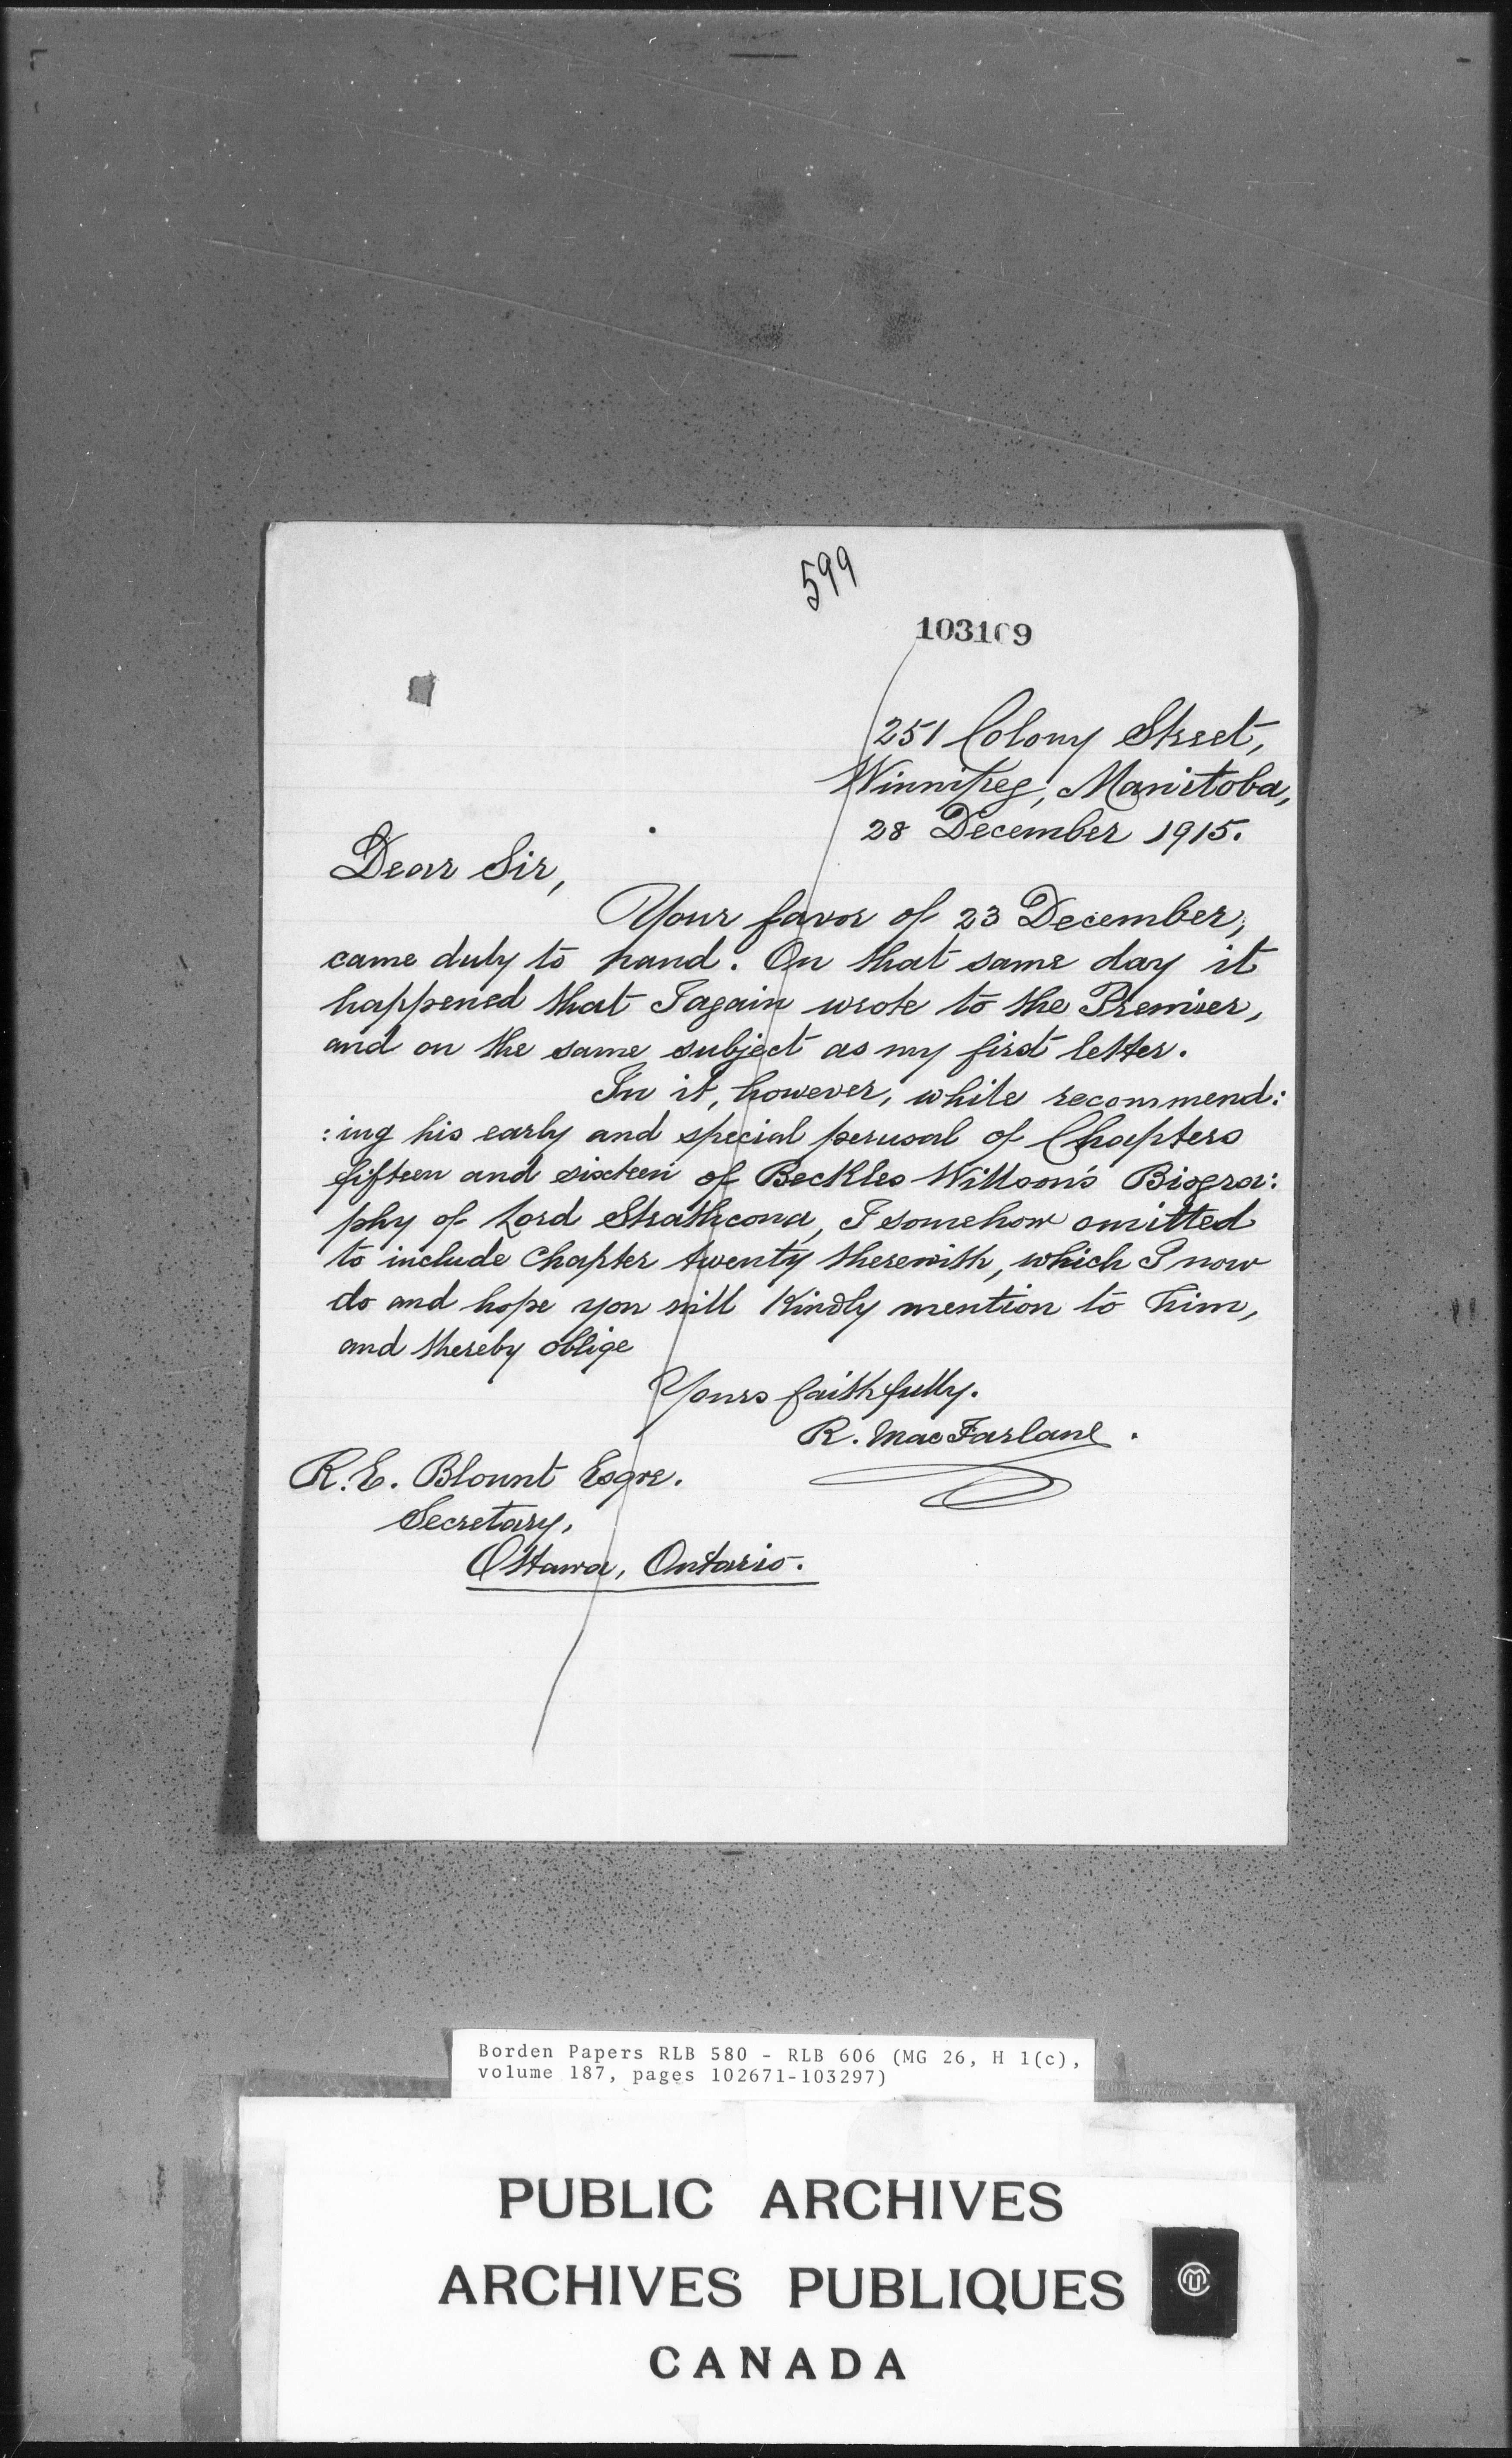 599
103109
251 Colony Street,
Winnipeg, Manitoba,
28 December 1915.
Dear Sir,
Your favor of 23 December,
came duly to hand. On that same day it
happened that I again wrote to the Premier,
and on the same subject as my first letter.
In it, however, while recommend:
:ing his early and special perusal of Chapters
fifteen and sixteen of Beckles Willson's Biogra:
phy of Lord Strathcona, I somehow omitted
to include Chapter twenty therewith, which I now
do and hope you will kindly mention to him,
and thereby oblige
Yours faithfully.
R. MacFarlane.
R. E. Blount Esqre.
Secretary,
Ottawa, Ontario.
Borden Papers RLB 580 - RLB 606 (MG 26, H 1(c),
volume 187, pages 102671-103297)
PUBLIC ARCHIVES
ARCHIVES PUBLIQUES
CANADA